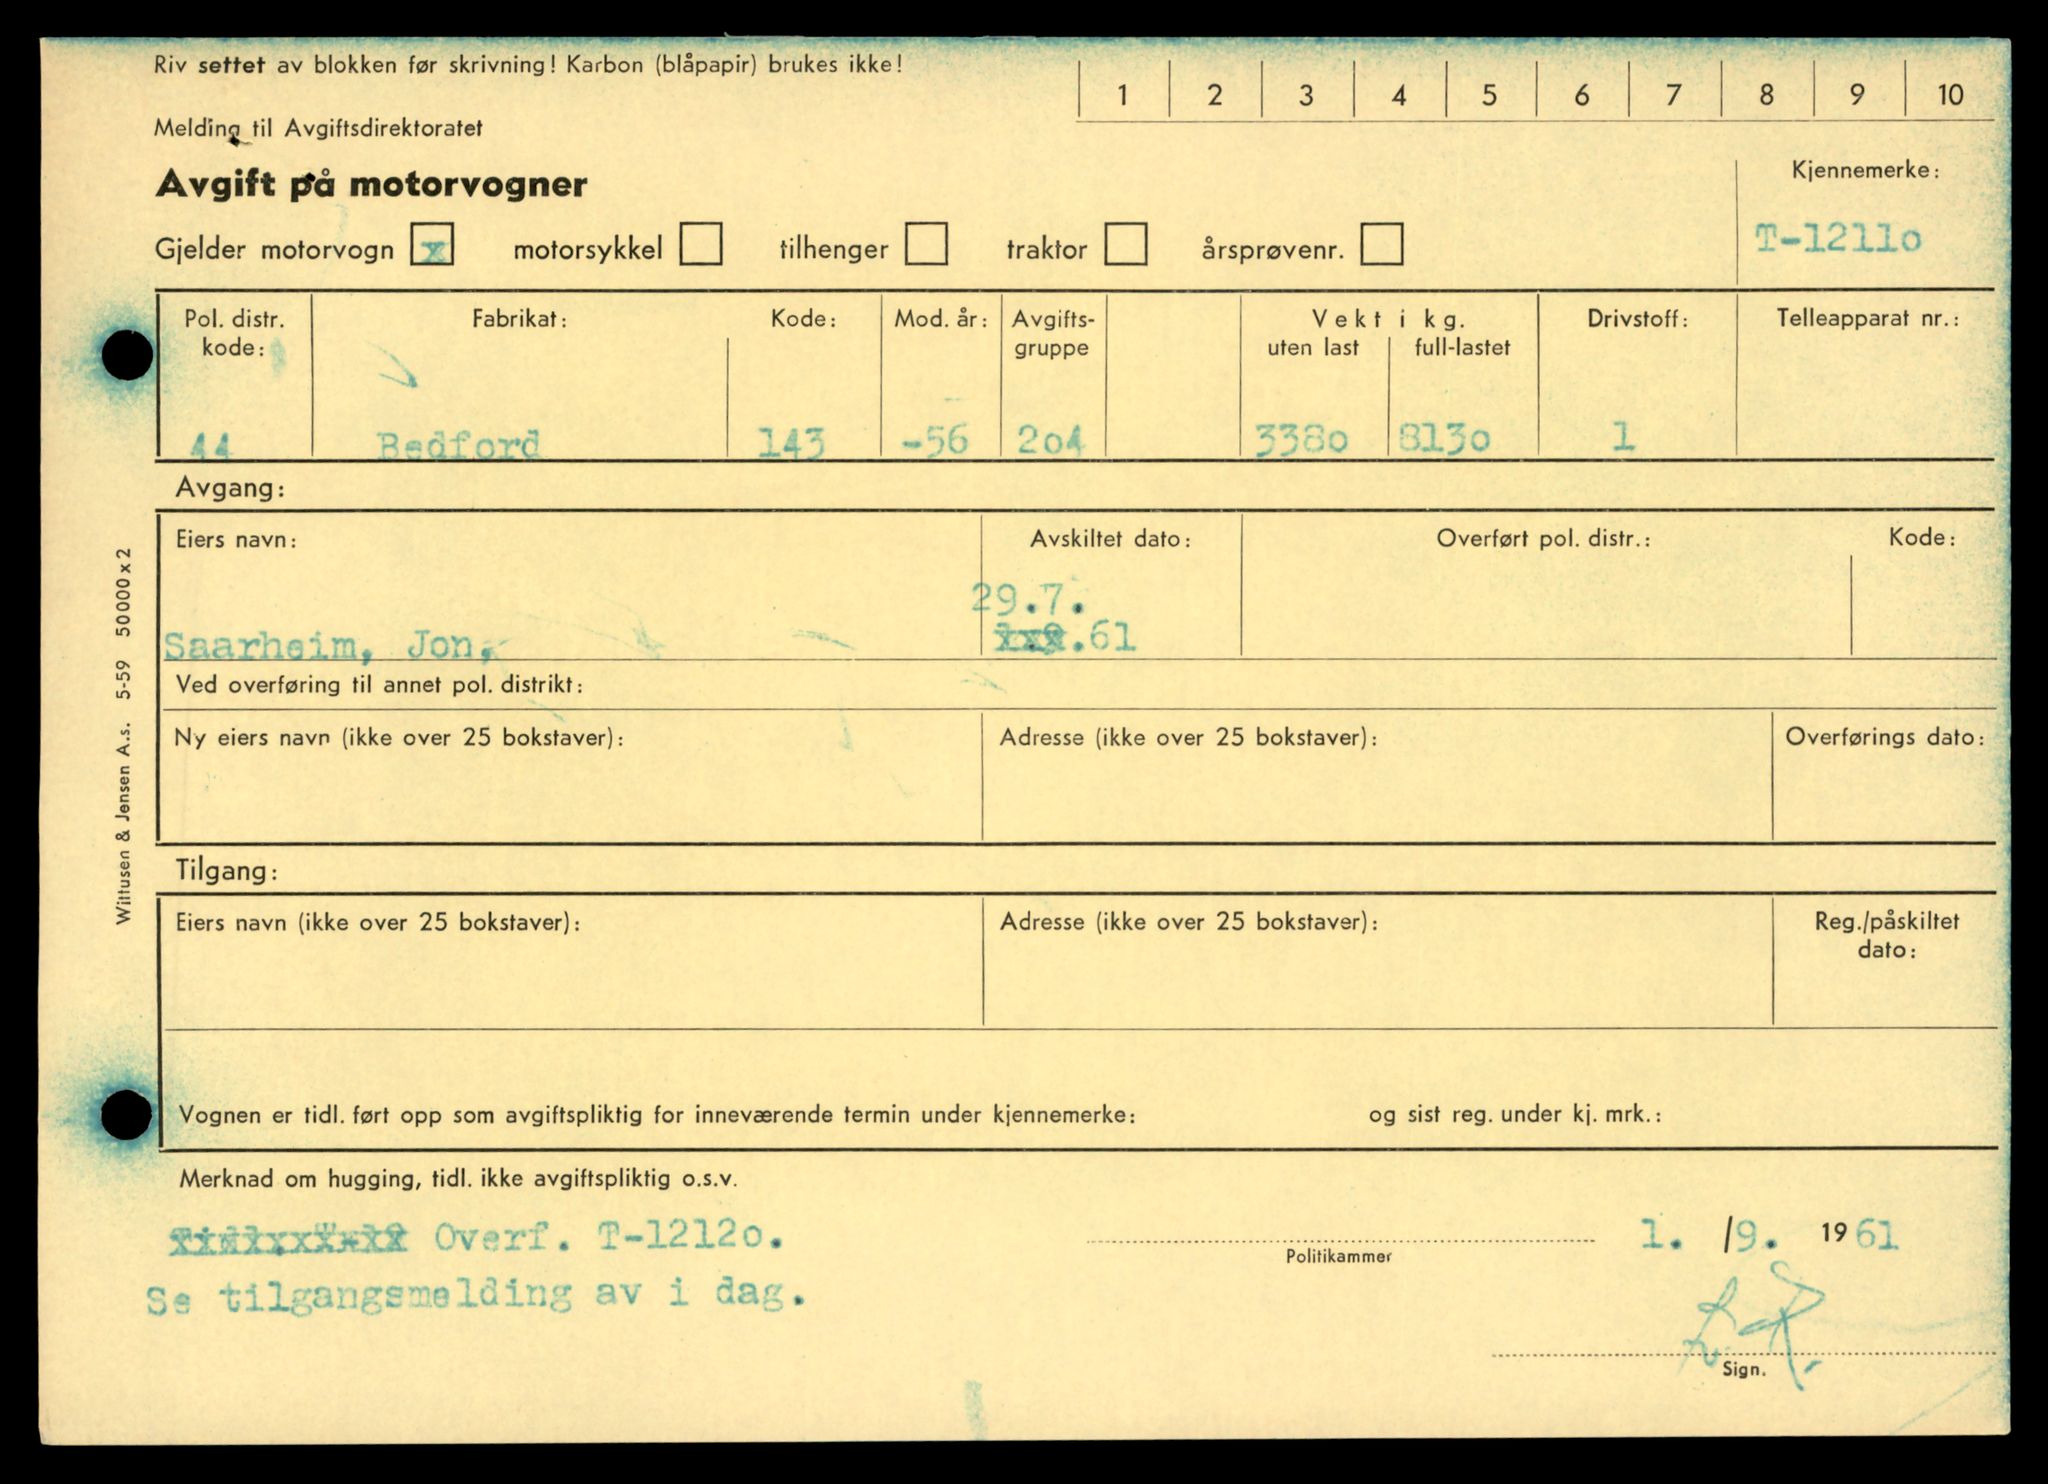 Riv settet av blokken før skrivning! Karbon (blåpapir) brukes ikke!
1 2 3 4 5 6 7 8 9 10
Melding til Avgiftsdirektoratet
Avgift på motorvogner
Kjennemerke:
T-1211o
Gjelder motorvogn x motorsykkel tilhenger traktor årsprøvenr.
Pol. distr. kode: Fabrikat: Kode: Mod. år: Avgifts-gruppe Vekt i kg. uten last full-lastet Drivstoff: Telleapparat nr.:
44 Bedford 143 -56 2o4 338o 813o 1
Avgang:
Eiers navn: Avskiltet dato: Overført pol. distr.: Kode:
29.7.
Saarheim, Jon, .61
Ved overføring til annet pol. distrikt:
Ny eiers navn (ikke over 25 bokstaver): Adresse (ikke over 25 bokstaver): Overførings dato:
Tilgang:
Eiers navn (ikke over 25 bokstaver): Adresse (ikke over 25 bokstaver): Reg./påskiltet dato:
Vognen er tidl. ført opp som avgiftspliktig for inneværende termin under kjennemerke: og sist reg. under kj. mrk.:
Merknad om hugging, tidl. ikke avgiftspliktig o.s.v.
Overf. T-1212o.
Se tilgangsmelding av i dag.
Politikammer
1. /9. 1961
L.R.
Sign.
Wittusen & Jensen A.s. 5-59 50000x2